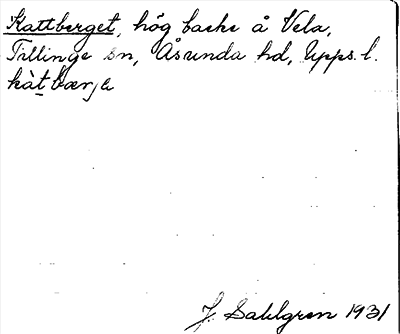 Kattberget, hög backe å Vela,
Tillinge sn, Åsunda hd, Upps. l.
J. Sahlgren 1931